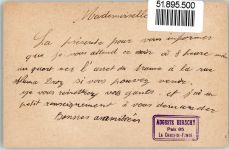 51.895.500
Mademoiselle
La présente pour vous informer
que je vous attend ce soir à 8 heure
un quart sur l'arret du tram à la rue
si vous pouvez venir,
je vous remettrez vos gants. et j'ai un
petit renseignement à vous demander
Bonnes amitiées
AUGUSTE HIRSCHY
Paix 65
La Chaux-de-Fonds